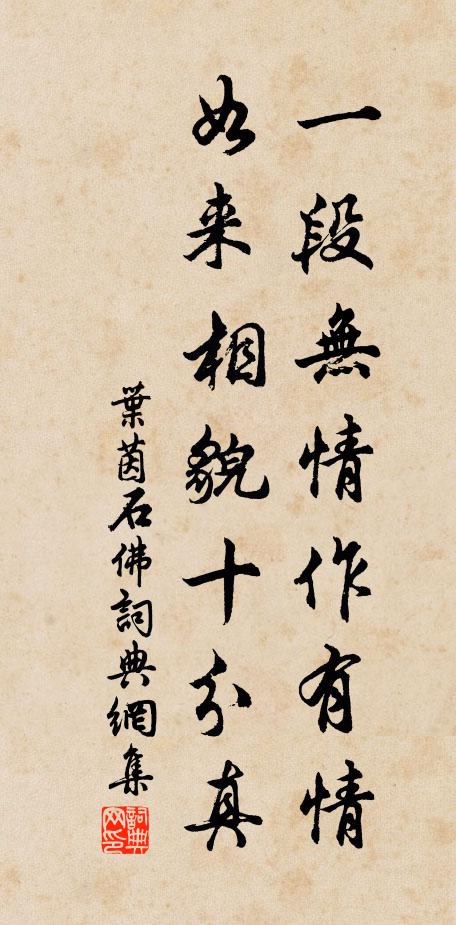 一段無情作有情
如来相貌十分真
葉茵石佛詞典網集
詞典网印